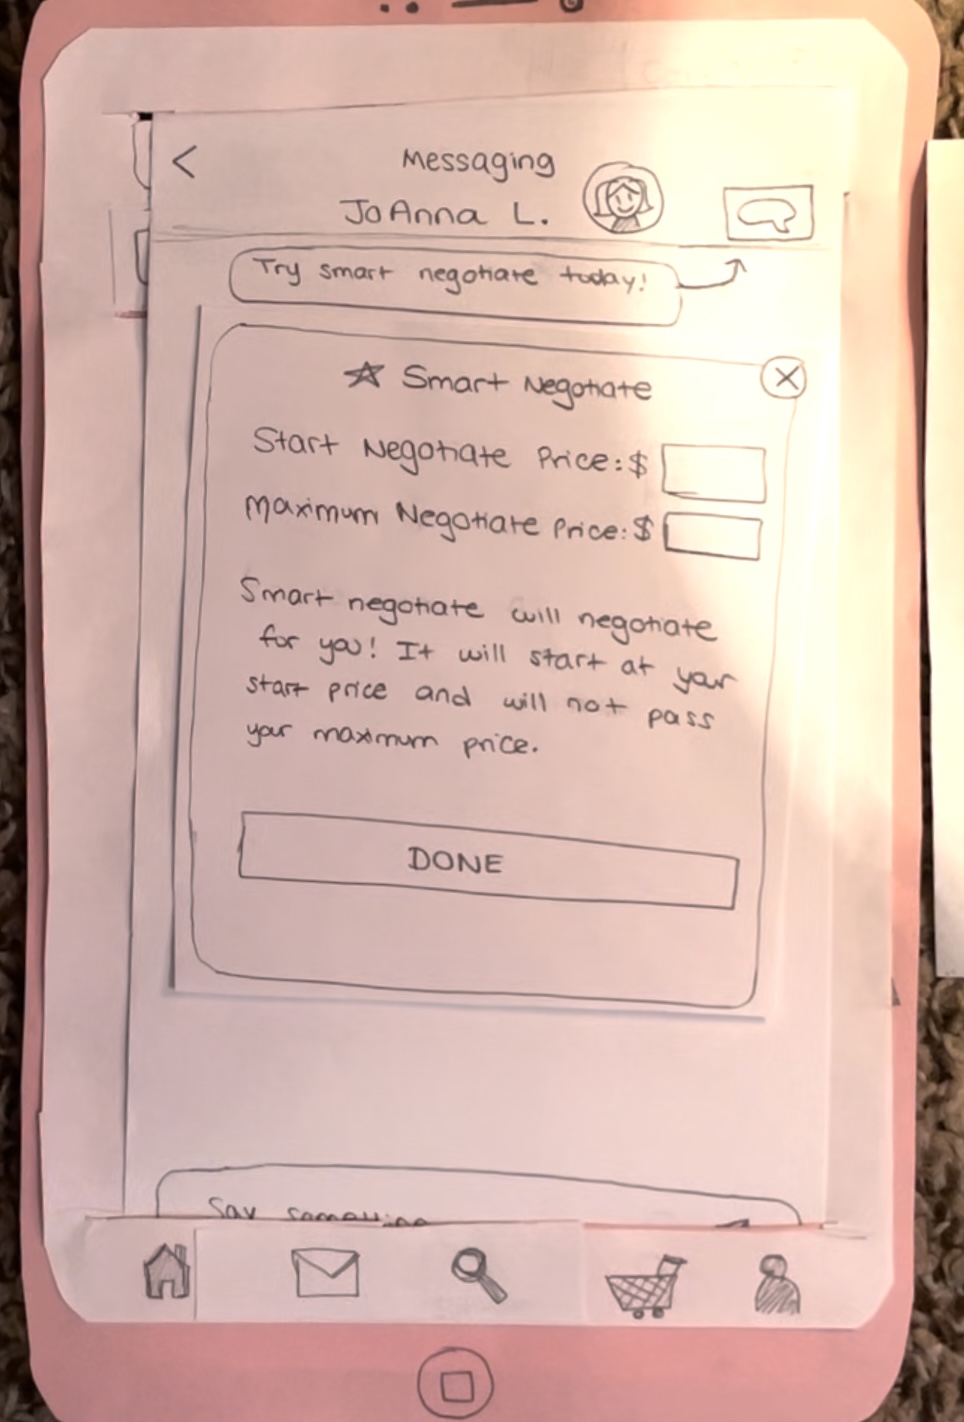 <
Messaging
JoAnna L.
Try smart negotiate today!
Smart Negotiate
X
Start Negotiate Price: $
Maximum Negotiate Price: $
Smart negotiate will negotiate
for you! It will start at your
start price and will not pass
your maximum price.
DONE
Say something